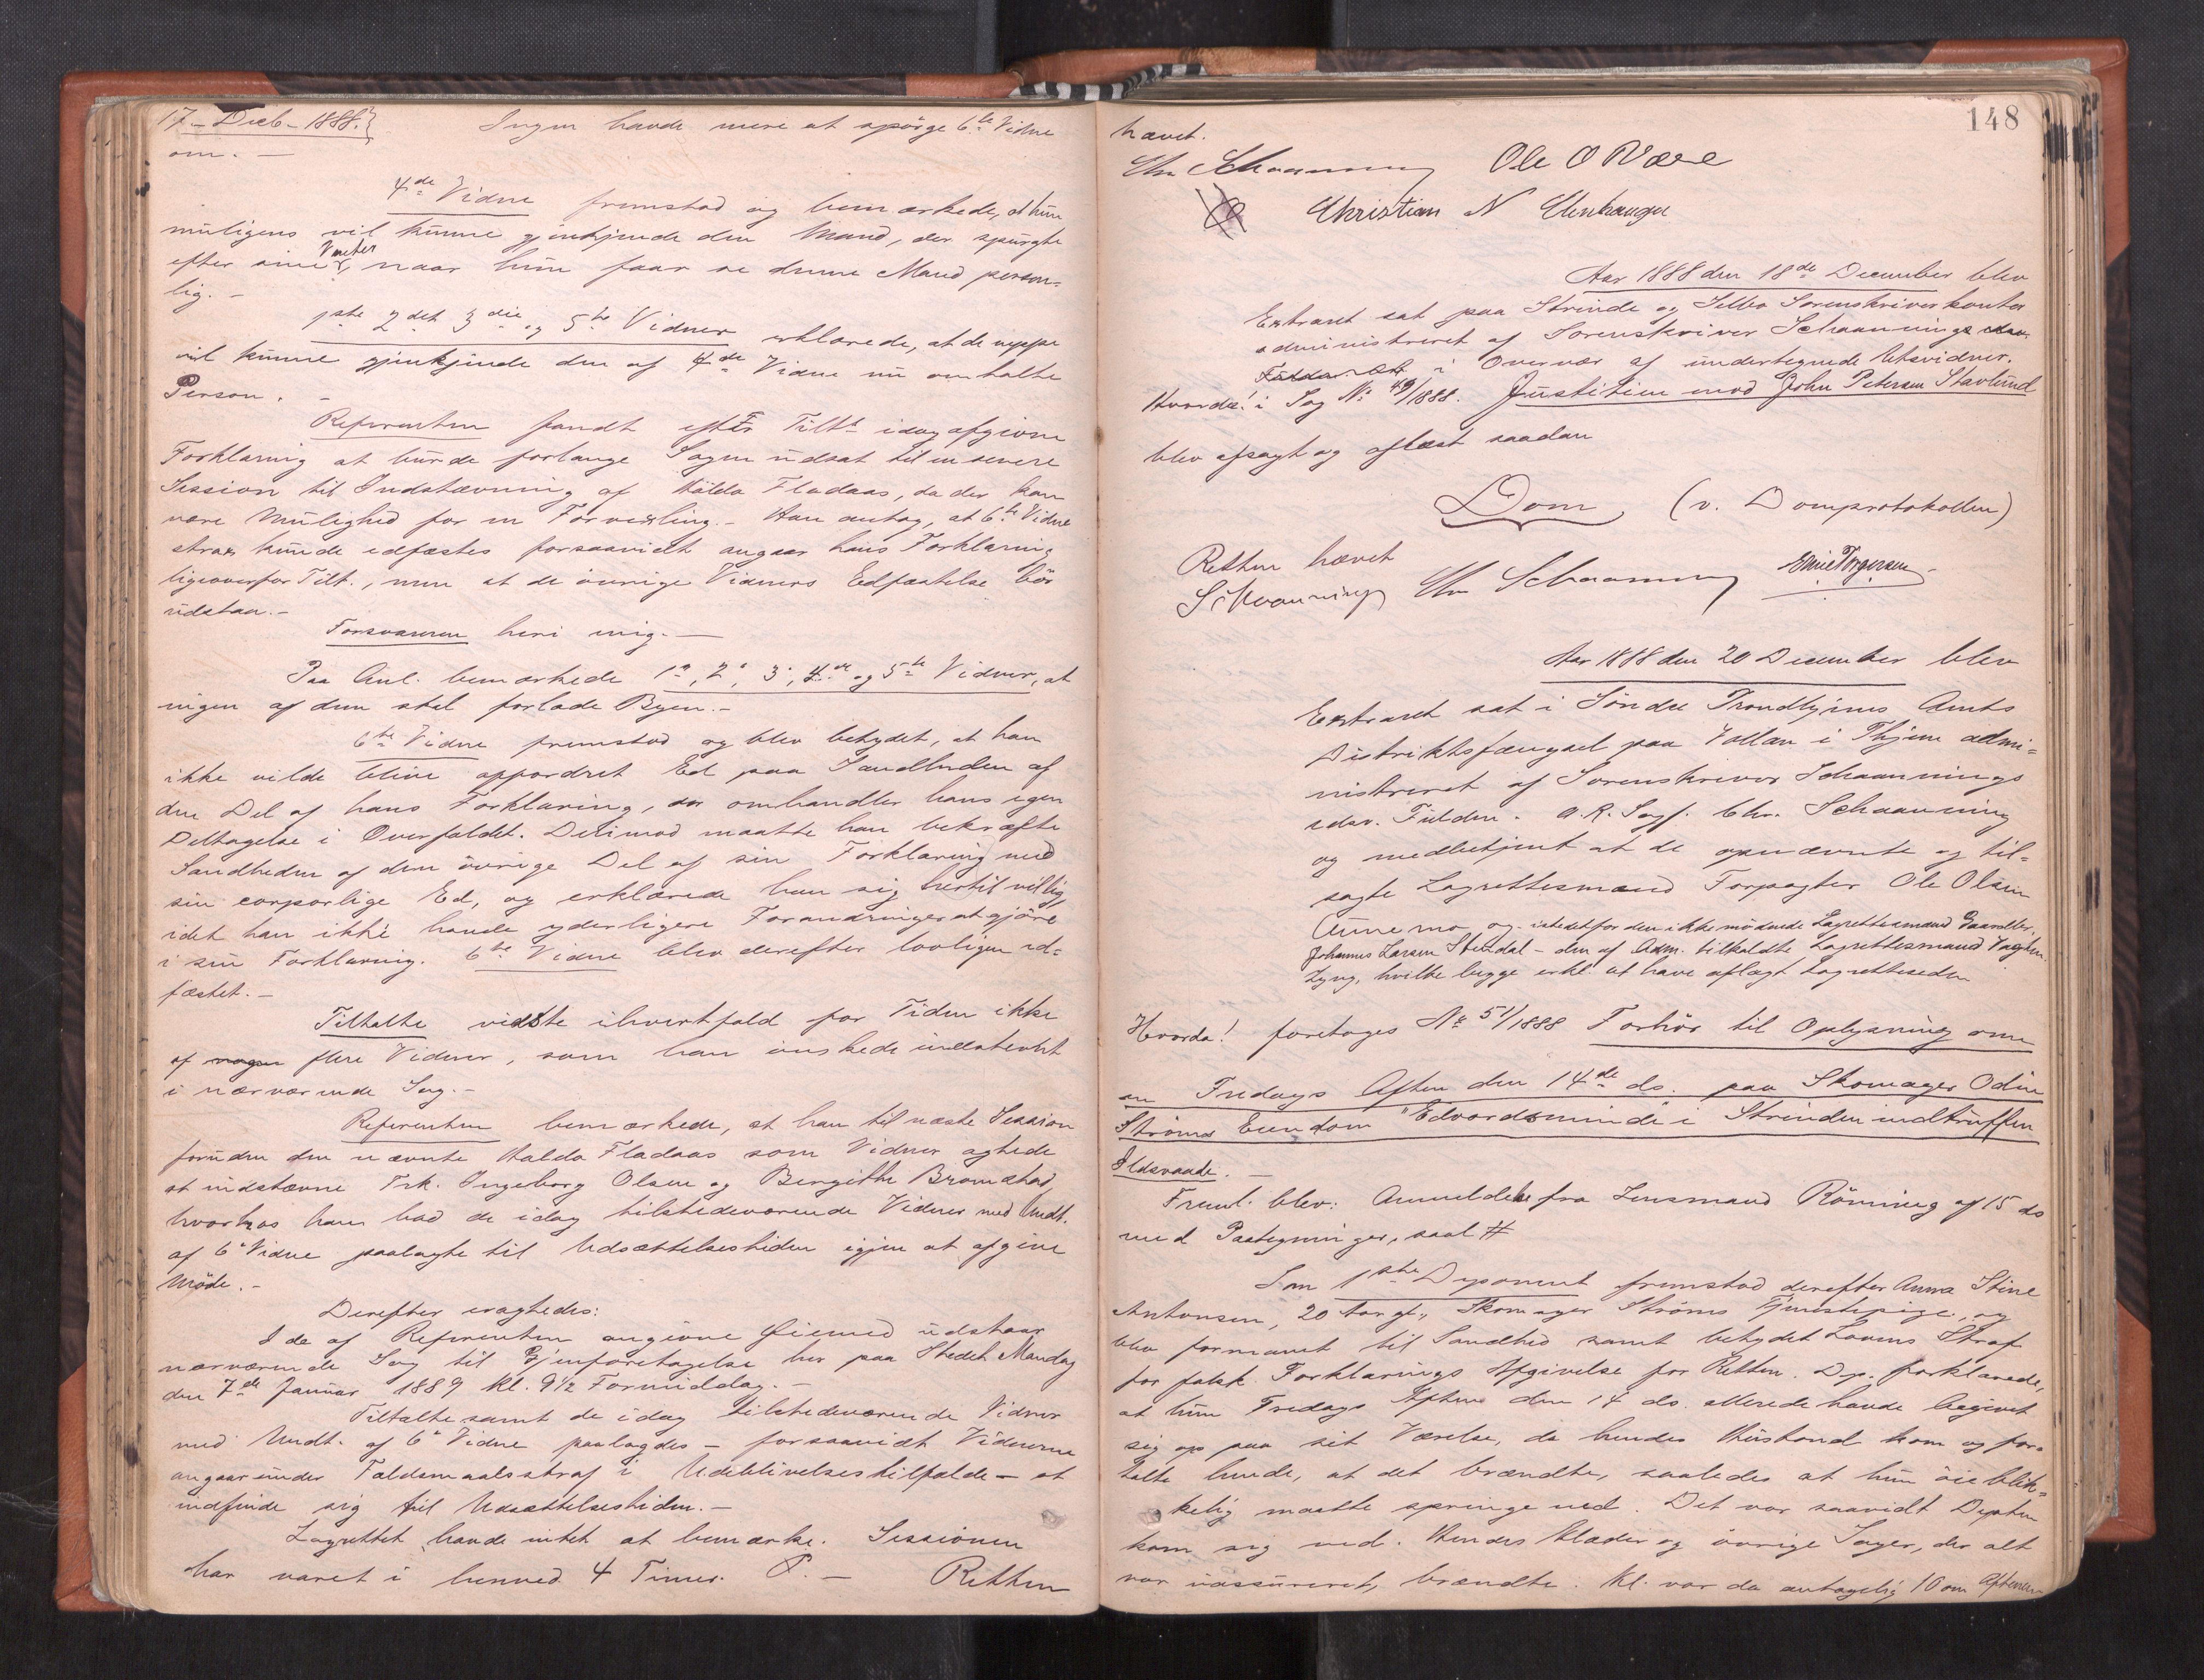 17 - Decb - 1888. Ingen havde mere at spörge 6te Vidne
om. -
4de Vidne fremstod og bemærkede, at hun
muligens vil kunne gjenkjende den Mand, der spurgte
efter sine Vanter, naar hun faar se denne Mand person-
lig. -
1ste 2det 3die og 5te Vidner erklærede, at de neppe
vil kunne gjenkjende den af 4de Vidne nu omtalte
Person. -
Referenten fandt efter Tiltes idag afgivne
Forklaring at burde forlange Sagen udsat til en senere
Session til Indstævning af Halda Fladaas, da der kan
være Mulighed for en Forvexling. - Han antog, at 6te Vidne
strax kunde edfæstes forsaavidt angaar hans Forklaring
ligeoverfor Tilt., men at de övrige Vidners Edfæstelse bör
udstaa. -
Forsvareren heri enig. -
Paa Anl. bemærkede 1ste, 2, 3, 4de og 5te Vidner, at
ingen af dem skal forlade Byen. -
6te Vidne fremstod og blev betydet, at han
ikke vilde blive affordret Ed paa Sandheden af
den Del af hans Forklaring, der omhandler hans egen
Deltagelse i Overfaldet. Derimod maatte han bekræfte
Sandheden af den övrige Del af sin Forklaring med
sin corporlige Ed, og erklærede han sig hertil villig,
idet han ikke havde yderligere Forandringer at gjöre
i sin Forklaring. 6te Vidne blev derefter lovligen ed-
fæstet. -
Tiltalte vidste ihvertfald for Tiden ikke
af flere Vidner, som han önskede indstevnt
i nærværende Sag. -
Referenten bemærkede, at han til næste Session
foruden den nævnte Halda Fladaas som Vidner agtede
at indstævne Frk. Ingeborg Olsen og Bergithe Bromstad,
hvorhos han bad de idag tilstedeværende Vidner med Undt.
af 6te Vidne paalagte til Udsættelsestiden igjen at afgive
Möde. -
Derefter eragtedes:
I de af Referenten angivne Öiemed udstaar
nærværende Sag til Gjenforetagelse her paa Stedet Mandag
den 7de Januar 1889 kl. 9½ Formiddag. -
Tiltalte samt de idag tilstedeværende Vidner
med Undt. af 6te Vidne paalagdes - forsaavidt Vidnerne
angaar under Faldsmaalsstraf i Udeblivelsestilfælde - at
indfinde sig til Udsættelsestiden. -
Lagrettet havde intet at bemærke. Sessionen
har varet i henved 4 Timer. P. - Retten
148
hævet.
Chr Schaanning Ole O Være
Christian N
Aar 1888 den 18de December blev
Extraret sat paa Strinde og Selbo Sorenskriverkontor
administreret af Sorenskriver Schaannings
i Overvær af undertegnede Retsvidner.
Hvorda! i Sag No 49/1888. Justitien mod John Petersen Stavlund
blev afsagt og aflæst saadan
Dom, (v. Domprotokollen)
Retten hævet
Schaanning Chr Schaanning Torgersen
Aar 1888 den 20 December blev
Extraret sat i Söndre Trondhjems Amts
Distriktsfængsel paa Vollan i Thjem admi-
nistreret af Sorenskriver Schaannings
edsv. Fuldm. O.R. Sagf. Chr. Schaanning
og medbetjent af de opnævnte og til-
sagte Lagrettesmænd Forpagter Ole Olsen
og istedetfor den ikke mödende Lagrettesmand Gaardbr.
Johannes Larsen Stendal - den af Adm. tilkaldte Lagrettesmand
Lyng, hvilke begge erkl. at have aflagt Lagretteseden
Hvorda! foretages No 51/1888 Forhör til Oplysning om
en Fredags Aften den 14de ds. paa Skomager Odin
Ströms Eiendom "Edvardsminde" i Strinden indtruffen
Ildsvaade. -
Freml. blev: Anmeldelse fra Lensmand Rönning af 15 ds
med Paategninger, saal. #
Som 1ste Deponent fremstod derefter Anna Stine
Antonsen, 20 Aar gl., Skomager Ströms Tjenestepige, og
blev formanet til Sandhed samt betydet Lovens Straf
for falsk Forklarings Afgivelse for Retten. Dep. forklarede,
at hun Fredags Aften den 14 ds. allerede havde begivet
sig op paa sit Værelse, da hendes Husbond kom og for-
talte hende, at det brændte, saaledes at hun öieblik-
kelig maatte springe ned. Det var saavidt Depten
kom sig ned. Hendes Klæder og övrige Sager, der alt
var uassureret, brændte. Kl. var da antagelig 10 om Aftenen